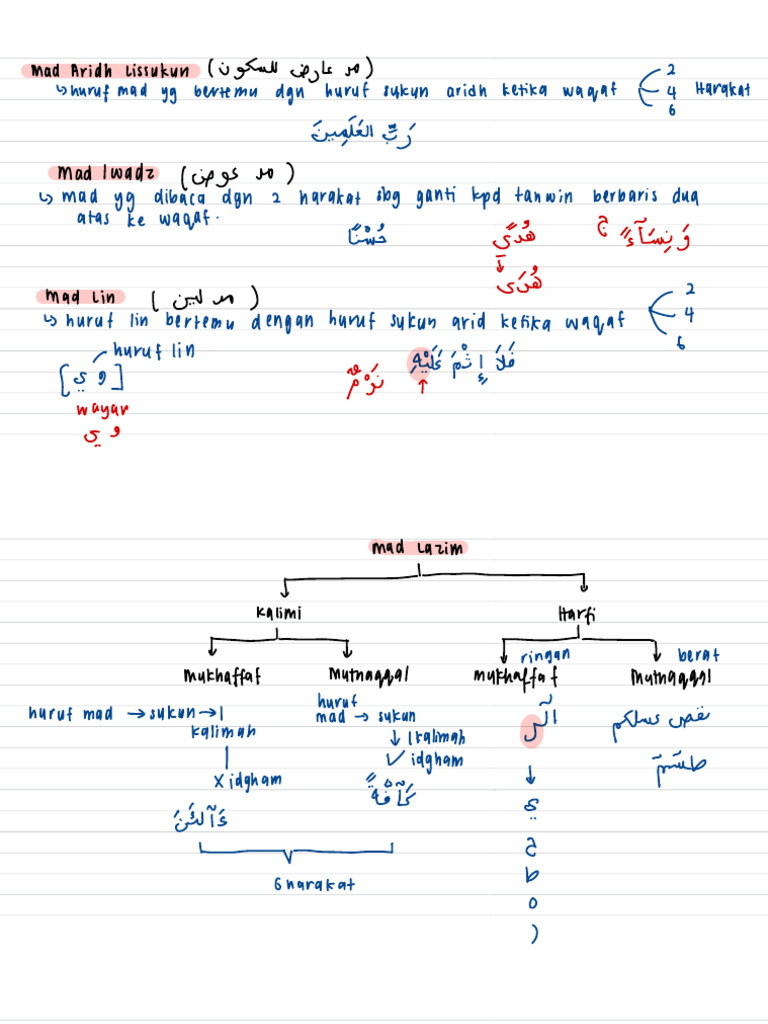 mad Aridh Lissukun (مد عارض للسكون)
↳ huruf mad yg bertemu dgn huruf sukun aridh ketika waqaf 2 4 6 Harakat
رَبِّ العَلَمِينَ
mad Iwadz (مد عوض)
↳ mad yg dibaca dgn 2 harakat sbg ganti kpd tanwin berbaris dua
atas ke waqaf.
حُسْنًا هُدًى وَنِسَآءً ج
هُدَى
mad Lin (مد لين)
↳ huruf lin bertemu dengan huruf sukun arid ketika waqaf 2 4 6
huruf lin
[وي]
فَلَا إِثْمَ عَلَيْهِ
نَوْمٌ
wayar
وي
mad Lazim
Kalimi Harfi
ringan berat
Mukhaffaf Mutnaqqal mukhaffaf Mutnaqqal
huruf mad → sukun → 1
kalimah
X idgham
ءَآلْـَٔنَ
huruf
mad → sukun
↓ 1 kalimah
✓ idgham
كَآفَّةً
6 harakat
الٓر
↓
ي
ح
ط
ه
ر
نقص عسلكم
طسٓمٓ